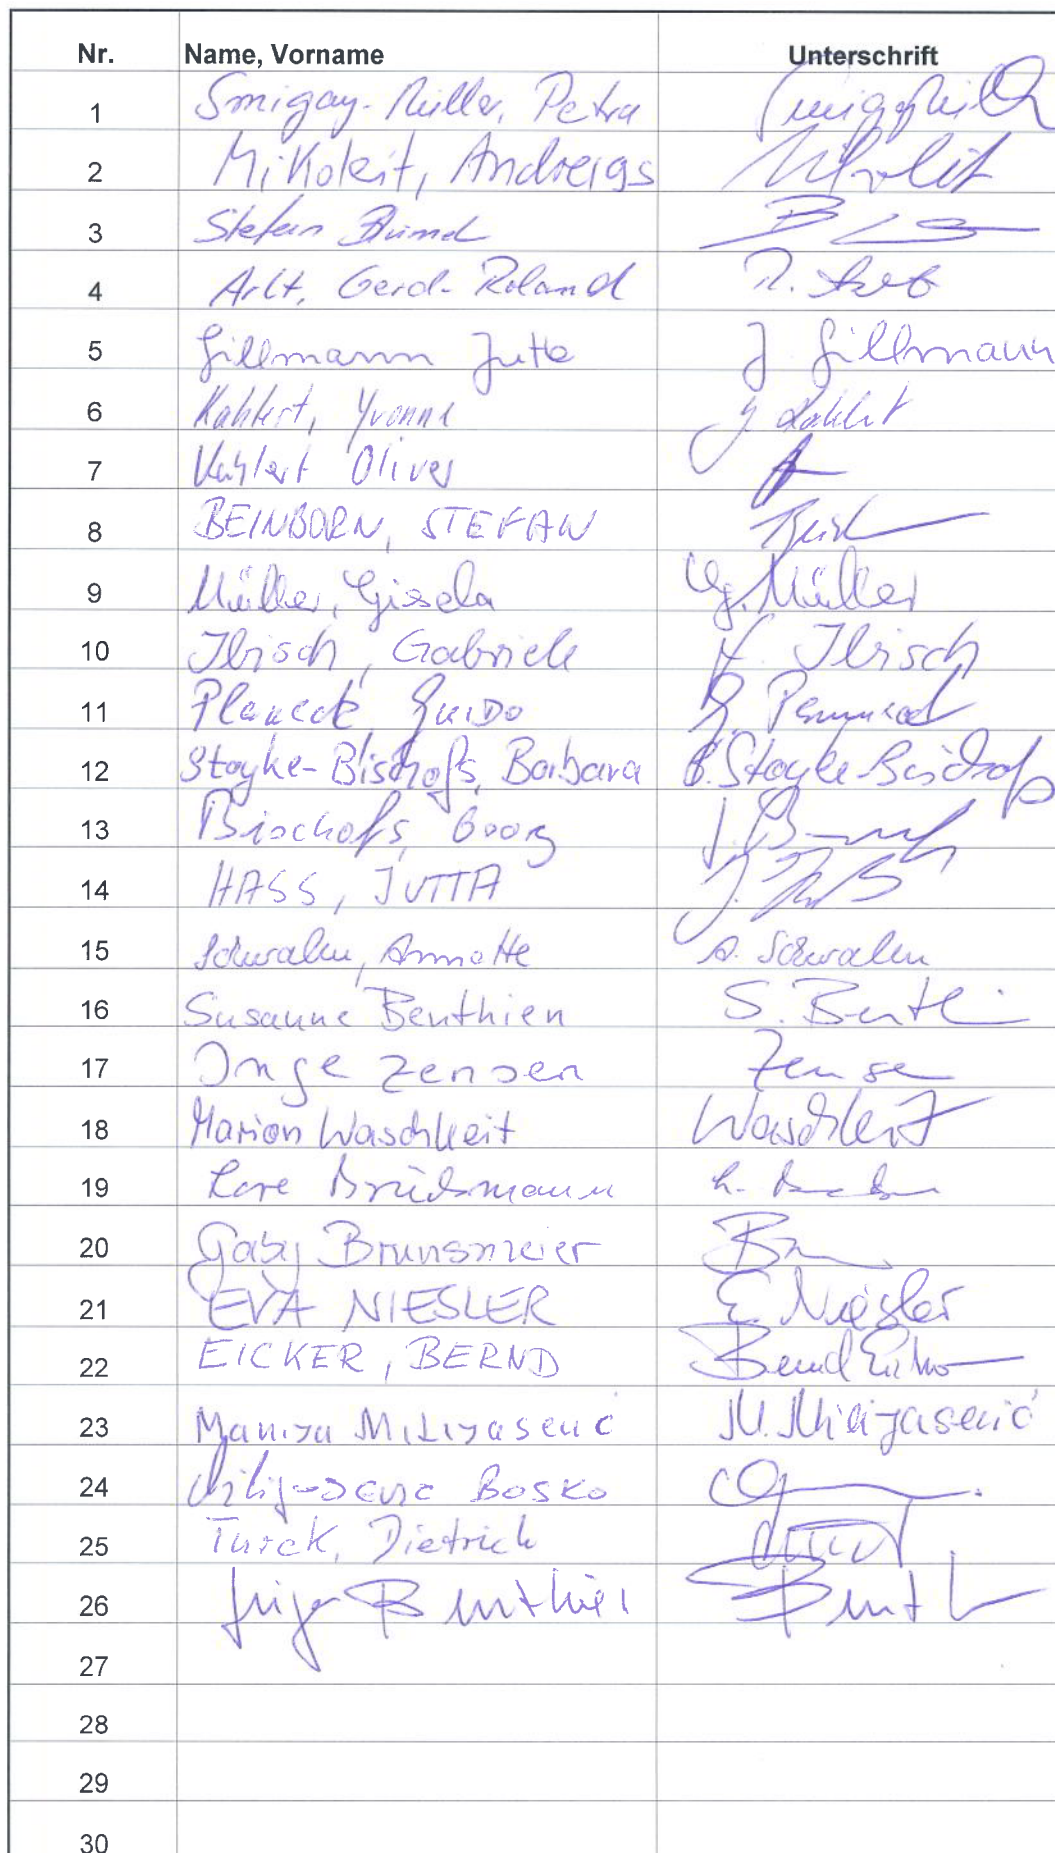 Nr. Name, Vorname Unterschrift
1 Smigay-Müller, Petra
2 Mikoleit, Andreas Mikoleit
3 Stefan
4 Arlt, Gerd-Roland R. Arlt
5 Gillmann Jutta J Gillmann
6 Kahlert, Yvonne Y Kahlert
7 Kahlert Oliver
8 BEINBORN, STEFAN
9 Müller, Gisela Müller
10 Ibisch, Gabriele Ibisch
11 Guido
12 Stoyke-Bischofs, Barbara B. Stoyke-Bischofs
13 Bischofs, Georg
14 HASS, JUTTA J.
15 Schwalm, Annette A. Schwalm
16 Susanne Benthien S. Benthien
17 Inge Zensen Zensen
18 Marion Waschkeit Waschkeit
19 Lore Brücksmann
20 Gaby Brunsmeier
21 EVA NIESLER E. Niesler
22 EICKER, BERND Bernd Eicker
23 M. Milijasević
24 Bosko
25 Turck, Dietrich
26 Benthien
27
28
29
30